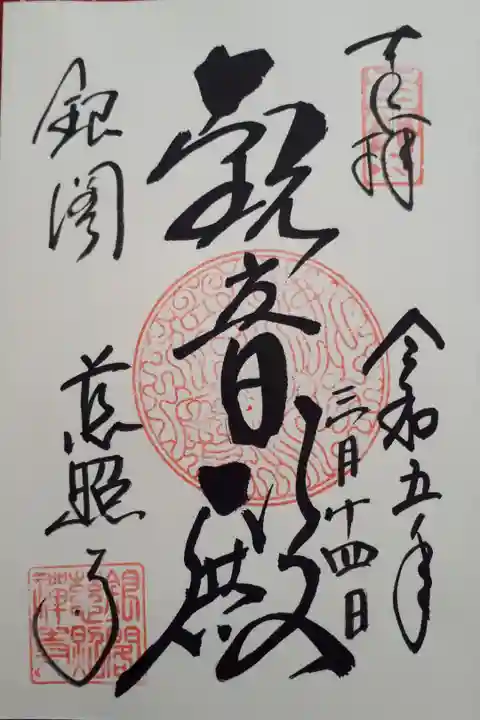 奉拝
令和五年
三月十四日
観音殿
銀閣
慈照寺